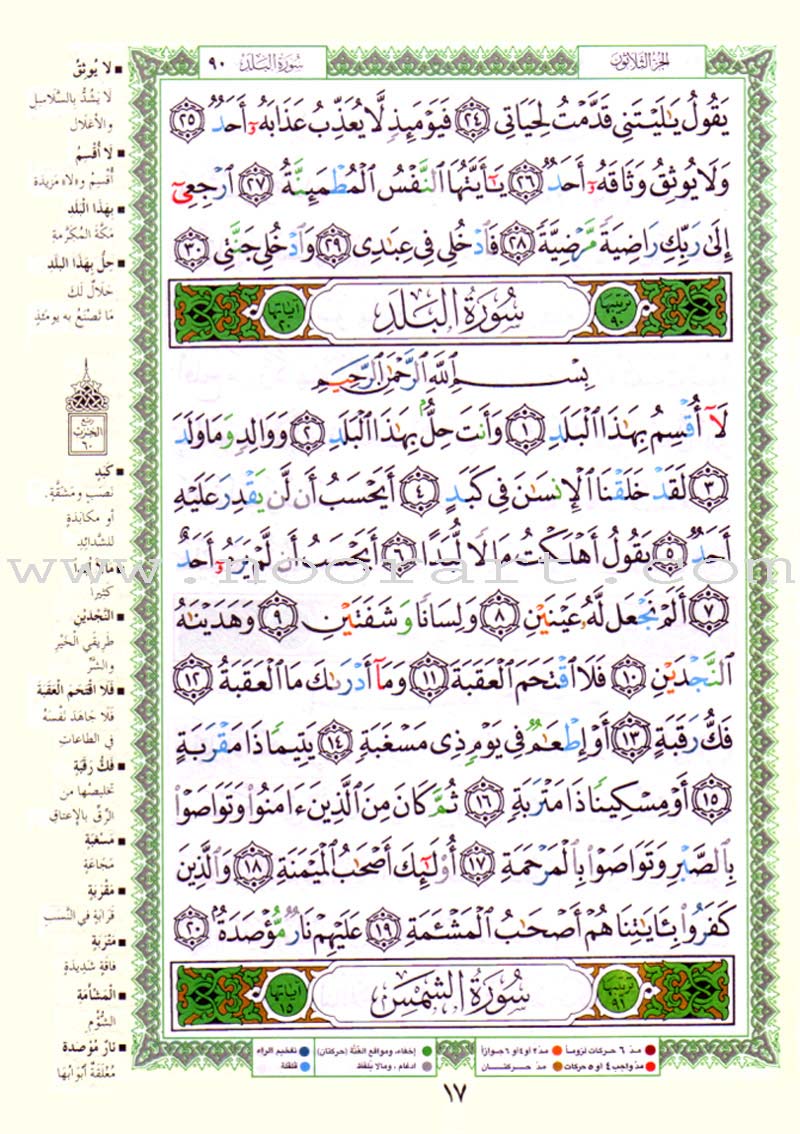 الجزء الثلاثون
سورة البلد ٩٠
يَقُولُ يَٰلَيْتَنِى قَدَّمْتُ لِحَيَاتِى ٢٤ فَيَوْمَئِذٍ لَّا يُعَذِّبُ عَذَابَهُۥٓ أَحَدٌ ٢٥
وَلَا يُوثِقُ وَثَاقَهُۥٓ أَحَدٌ ٢٦ يَٰٓأَيَّتُهَا ٱلنَّفْسُ ٱلْمُطْمَئِنَّةُ ٢٧ ٱرْجِعِىٓ
إِلَىٰ رَبِّكِ رَاضِيَةً مَّرْضِيَّةً ٢٨ فَٱدْخُلِى فِى عِبَٰدِى ٢٩ وَٱدْخُلِى جَنَّتِى ٣٠
ترتيبها ٩٠ سُورَةُ البَلَدِ آياتها ٢٠
بِسْمِ ٱللَّهِ ٱلرَّحْمَٰنِ ٱلرَّحِيمِ
لَآ أُقْسِمُ بِهَٰذَا ٱلْبَلَدِ ١ وَأَنتَ حِلٌّۢ بِهَٰذَا ٱلْبَلَدِ ٢ وَوَالِدٍ وَمَا وَلَدَ
٣ لَقَدْ خَلَقْنَا ٱلْإِنسَٰنَ فِى كَبَدٍ ٤ أَيَحْسَبُ أَن لَّن يَقْدِرَ عَلَيْهِ
أَحَدٌ ٥ يَقُولُ أَهْلَكْتُ مَالًا لُّبَدًا ٦ أَيَحْسَبُ أَن لَّمْ يَرَهُۥٓ أَحَدٌ
٧ أَلَمْ نَجْعَل لَّهُۥ عَيْنَيْنِ ٨ وَلِسَانًا وَشَفَتَيْنِ ٩ وَهَدَيْنَٰهُ
ٱلنَّجْدَيْنِ ١٠ فَلَا ٱقْتَحَمَ ٱلْعَقَبَةَ ١١ وَمَآ أَدْرَىٰكَ مَا ٱلْعَقَبَةُ ١٢
فَكُّ رَقَبَةٍ ١٣ أَوْ إِطْعَٰمٌ فِى يَوْمٍ ذِى مَسْغَبَةٍ ١٤ يَتِيمًا ذَا مَقْرَبَةٍ
١٥ أَوْ مِسْكِينًا ذَا مَتْرَبَةٍ ١٦ ثُمَّ كَانَ مِنَ ٱلَّذِينَ ءَامَنُوا۟ وَتَوَاصَوْا۟
بِٱلصَّبْرِ وَتَوَاصَوْا۟ بِٱلْمَرْحَمَةِ ١٧ أُو۟لَٰٓئِكَ أَصْحَٰبُ ٱلْمَيْمَنَةِ ١٨ وَٱلَّذِينَ
كَفَرُوا۟ بِـَٔايَٰتِنَا هُمْ أَصْحَٰبُ ٱلْمَشْـَٔمَةِ ١٩ عَلَيْهِمْ نَارٌ مُّؤْصَدَةٌۢ ٢٠
ترتيبها ٩١ سُورَةُ الشَّمْسِ آياتها ١٥
لَا يُوثِقُ
لَا يَشُدُّ بِالسَّلَاسِلِ
والأَغْلَالِ
لَا أُقْسِمُ
أُقْسِمُ و«لا» مَزِيدة
بِهَذَا الْبَلَدِ
مَكَّةَ الْمُكَرَّمَةِ
حِلٌّ بِهَذَا البَلَدِ
حَلَالٌ لَكَ
مَا تَصْنَعُ بِه يومَئِذٍ
ربع
الحزب
٦٠
كَبَدٍ
نَصَبٍ ومَشَقَّةٍ.
أو مكابَدَةٍ
للشَّدائِدِ
مَالًا لُبَدًا
كَثِيرا
النَّجْدَيْنِ
طَرِيقَي الْخَيْرِ
والشَّرِّ
فَلَا اقْتَحَمَ الْعَقَبَةَ
فَلَا جَاهَدَ نَفْسَهُ
فِي الطاعاتِ
فَكُّ رَقَبَةٍ
تَخليصُها من
الرِّقِّ بالإعتاقِ
مَسْغَبَةٍ
مَجَاعَةٍ
مَقْرَبَةٍ
قَرَابَةٍ فِي النَّسَبِ
مَتْرَبَةٍ
فَاقَةٍ شَدِيدَةٍ
الْمَشْأَمَةِ
الشُّؤْمِ
نَارٌ مُؤْصَدة
مُغْلَقَةٌ أَبْوَابُها
مدّ ٦ حركات لزوماً مدّ ٢ أو ٤ أو ٦ جوازاً
مدّ واجب ٤ أو ٥ حركات مدّ حركتان
إخفاء، ومواقع الغُنَّة (حركتان)
ادغام، ومالا يُلفَظ
تفخيم الراء
قلقلة
١٧
www.noorart.com